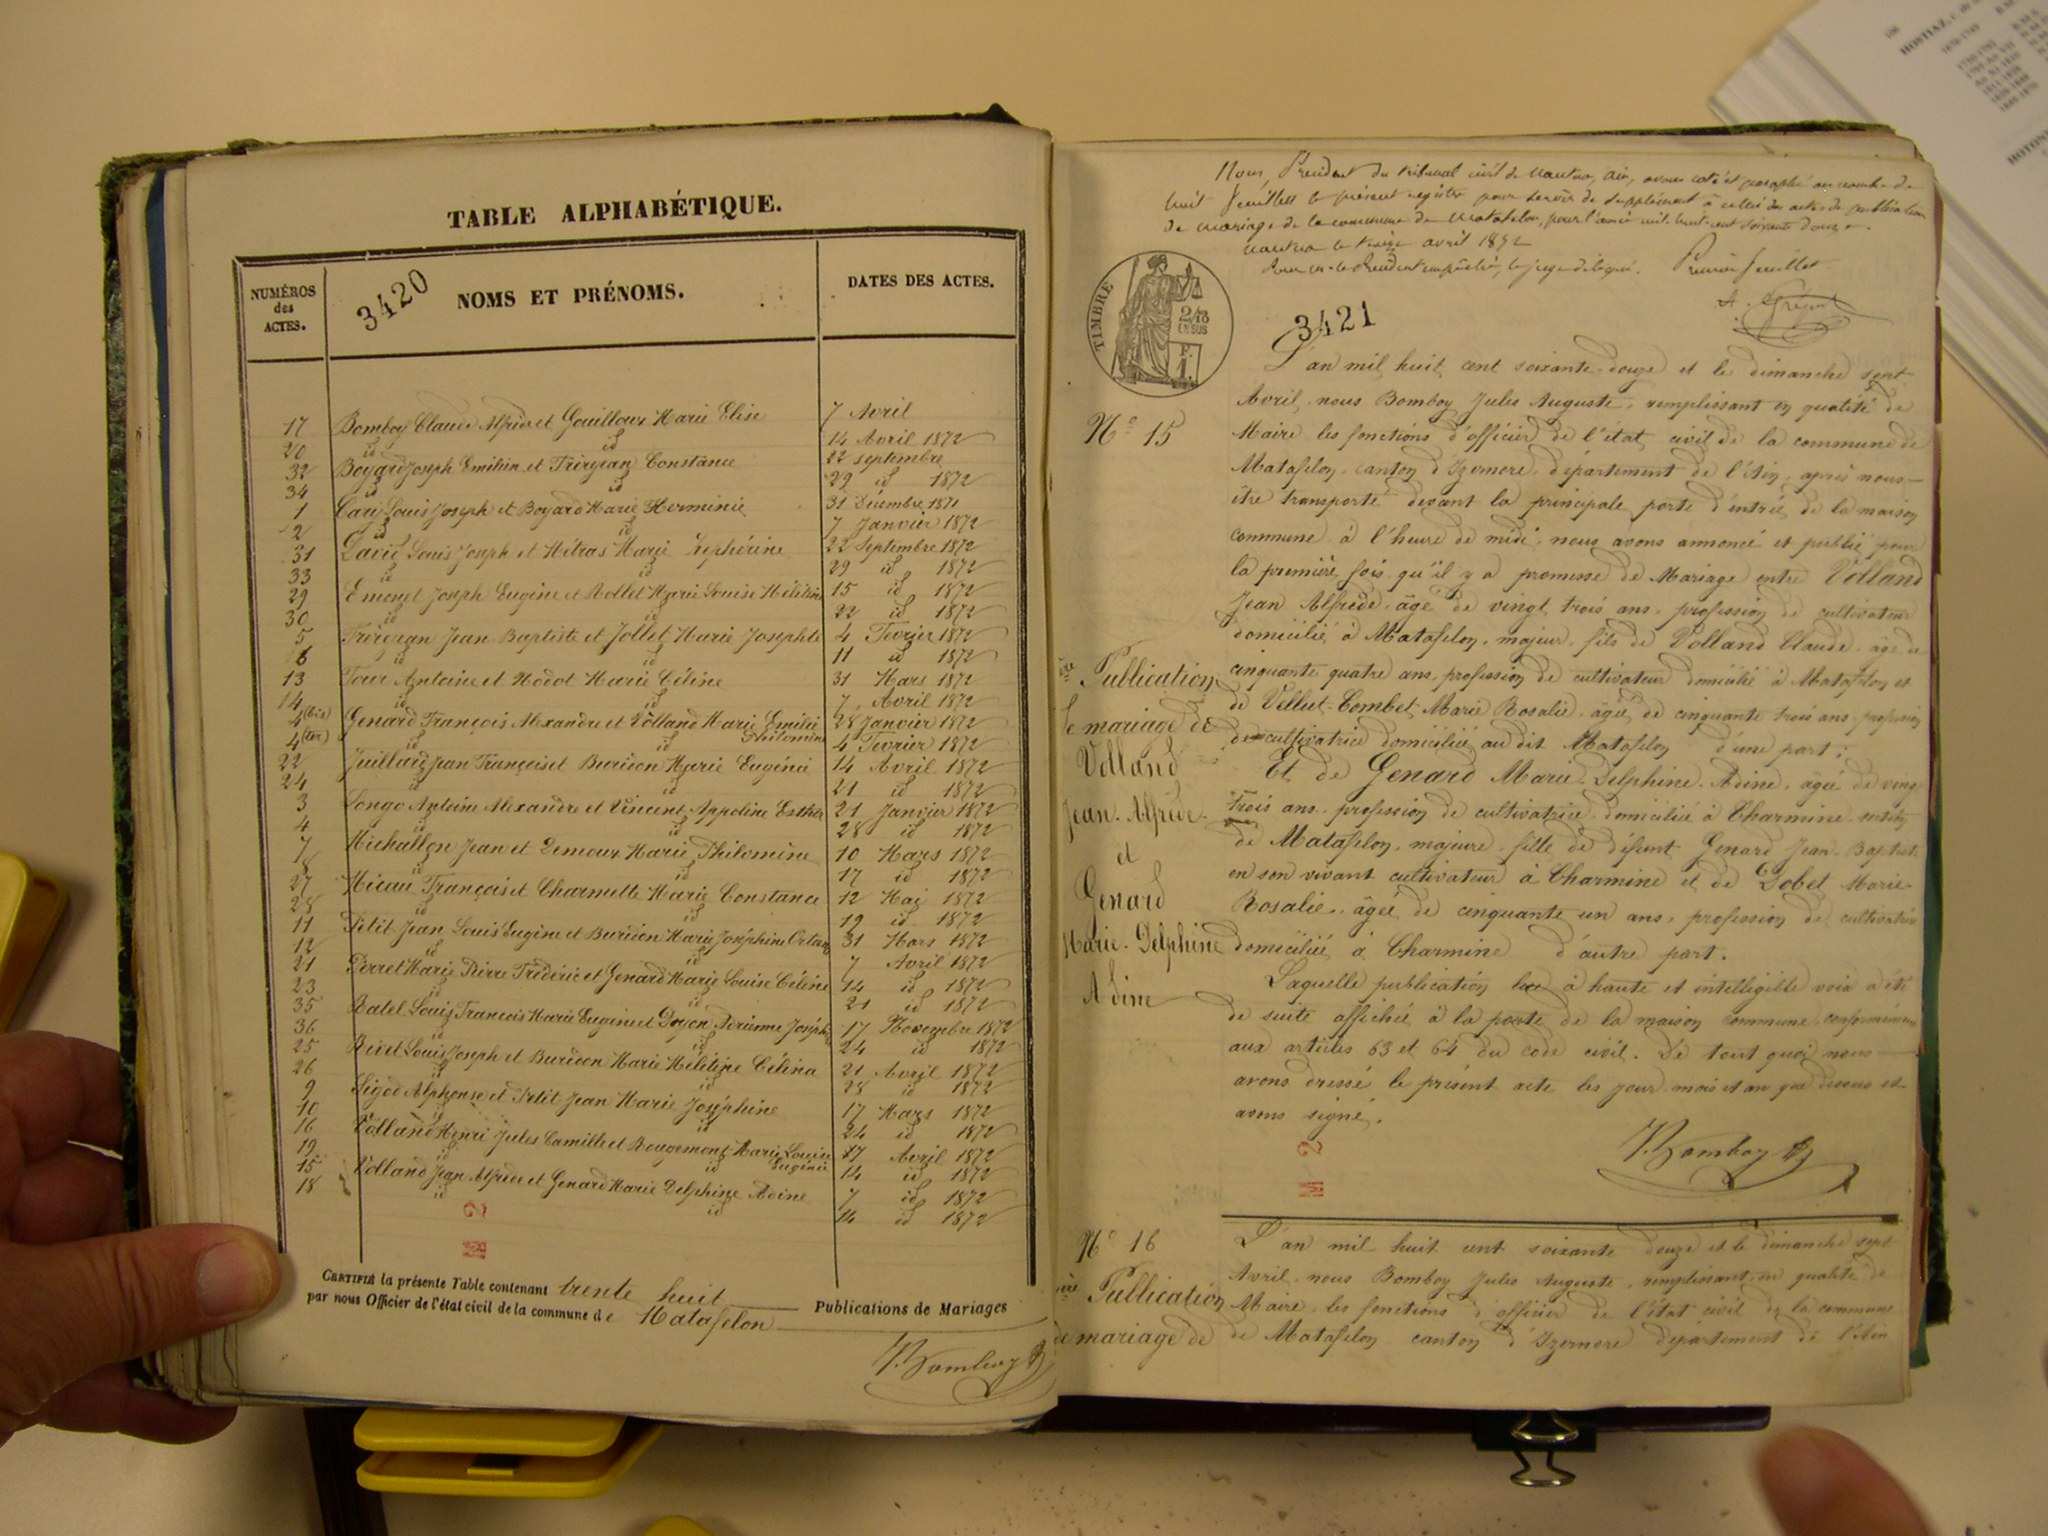 TABLE ALPHABÉTIQUE.
NUMÉROS des ACTES.
3420
NOMS ET PRÉNOMS.
DATES DES ACTES.
17 Bomboy Claude Alfred et Gouilloux Marie Elise 7 Avril
20 id id 14 Avril 1872
32 Boyard Joseph Emilien et Tréryean Constance 22 septembre
34 id id 29 id 1872
1 Cari Louis Joseph et Boyard Marie Herminie 31 Décembre 1871
2 id id 7 Janvier 1872
31 David Louis Joseph et Mitras Marie Zéphérine 22 Septembre 1872
33 id id 29 id 1872
29 Emonet Joseph Eugène et Rollet Marie Louise Hélétine 15 id 1872
30 id id 22 id 1872
5 Tréryean Jean Baptiste et Jollet Marie Josephte 4 Fevrier 1872
6 id id 11 id 1872
13 Four Antoine et Nodot Marie Céline 31 Mars 1872
14 id id 7 Avril 1872
4 (bis) Genard François Alexandre et Volland Marie Emilie Philomine 28 Janvier 1872
4 (ter) id id 4 Fevrier 1872
22 Juillard Jean François et Buridon Marie Eugénie 14 Avril 1872
24 id id 21 id 1872
3 Longo Antoine Alexandre et Vincent Appoline Esther 21 Janvier 1872
4 id id 28 id 1872
7 Michallon Jean et Demoux Marie Philomine 10 Mars 1872
8 id id 17 id 1872
27 Micau François et Charmette Marie Constance 12 Mai 1872
28 id id 19 id 1872
11 Petit Jean Louis Eugène et Buridon Marie Joséphine 31 Mars 1872
12 id id 7 Avril 1872
21 Perret Marie Pierre Fréderic et Genard Marie Louise Céline 14 id 1872
23 id id 21 id 1872
35 Ratel Louis François Marie Eugène et Doyon Adrienne Joséphe 17 Novembre 1872
36 id id 24 id 1872
25 Revel Louis Joseph et Buridon Marie Hélétine Célina 21 Avril 1872
26 id id 28 id 1872
9 Sigod Alphonse et Petit Jean Marie Joséphine 17 Mars 1872
10 id id 24 id 1872
16 Volland Henri Jules Camille et Rougemont Marie Louise Eugénie 7 Avril 1872
19 id id 14 id 1872
15 Volland Jean Alfred et Genard Marie Delphine Adine 7 id 1872
18 id id 14 id 1872
M 2
CERTIFIÉ la présente Table contenant trente huit Publications de Mariages
par nous Officier de l'état civil de la commune de Matafelon
J. Bomboy
Nous, Président du tribunal civil de Nantua, Ain, avons coté et paraphé au nombre de
huit feuillets le présent registre pour servir de supplément à celui des actes de publication
de mariage de la commune de Matafelon, pour l'année mil huit cent soixante douze.
Nantua le treize avril 1872
Pour M. le Président empêché, le juge délégué. Premier feuillet
TIMBRE
2/10 EN SUS
F. 1.
3421
L'an mil huit cent soixante-douze et le dimanche sept
N° 15
Avril, nous Bomboy Jules Auguste, remplissant en qualité de
Maire les fonctions d'officier de l'état civil de la commune de
Matafelon, canton d'Izernore, département de l'Ain, après nous
être transporté devant la principale porte d'entrée de la maison
commune à l'heure de midi, nous avons annoncé et publié pour
la première fois qu'il y a promesse de Mariage entre Volland
Jean Alfrède, âgé de vingt trois ans, profession de cultivateur
domicilié à Matafelon, majeur, fils de Volland Claude, âgé de
cinquante quatre ans, profession de cultivateur domicilié à Matafelon et
de Velliet-Combet Marie Rosalie, âgée de cinquante trois ans, profession
de cultivatrice domiciliée au dit Matafelon d'une part;
Et de Genard Marie Delphine Adine, âgée de vingt
trois ans, profession de cultivatrice domiciliée à Charmine section
de Matafelon, majeure, fille de défunt Genard Jean-Baptiste
en son vivant cultivateur à Charmine et de Gobet Marie
Rosalie, âgée de cinquante un ans, profession de cultivatrice
domiciliée à Charmine d'autre part.
Laquelle publication lue à haute et intelligible voix a été
de suite affichée à la porte de la maison commune conformément
aux articles 63 et 64 du code civil. De tout quoi nous
avons dressé le présent acte les jour, mois et an que dessus et
avons signé.
J. Bomboy
M 2
1ère Publication
de mariage de
Volland
Jean-Alfrède
et
Genard
Marie-Delphine
Adine
N° 16
L'an mil huit cent soixante douze et le dimanche sept
Avril, nous Bomboy Jules Auguste, remplissant en qualité de
1ère Publication
Maire, les fonctions d'officier de l'état civil de la commune
de mariage de
de Matafelon canton d'Izernore département de l'Ain
HOSTIAZ